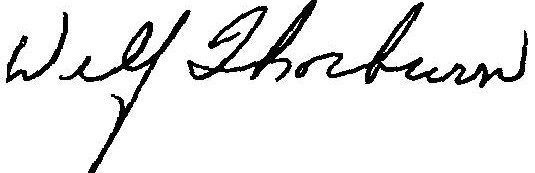 Wilf Thorburn